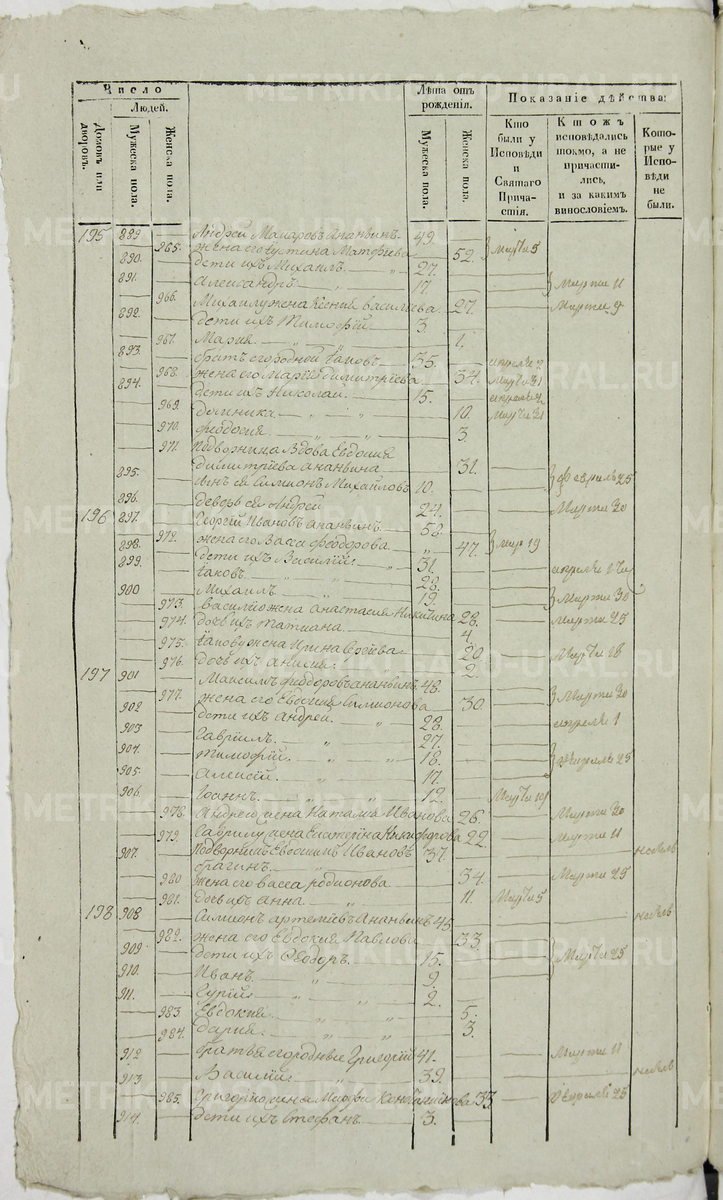 Число
Людей.
Домовъ или дворовъ.
Мужеска пола.
Женска пола.
Лѣта отъ рожденія.
Мужеска пола.
Женска пола.
Показаніе дѣйства:
Кто были у Исповѣди и Святаго Причастія.
Ктожъ исповѣдались токмо, а не причастились, и за какимъ винословіемъ.
Которые у Исповѣди не были.
195 889 Андрей Макаровъ Ананьинъ 49
965. жена его Устина Матфеева 52. Марта 5
890. дети ихъ Михаилъ 27.
891. Александръ 17 Марта 11
966. Михаилу жена Ксения Васильева 27. Марта 9
892. дети ихъ Тимофей 3
967. Мария 1.
893. братъ его родной Іаковъ 35. апреля 2
968. жена его Мария Димитриева 34. Марта 21
894. дети ихъ Николай 15. апреля 2
969. 10. Марта 21
970. Феодосия 3.
971. Подворница вдова Евдокия
Димитриева Ананьина 31.
895. сынъ ея Симионъ Михайловъ 10. Февраля 25
896. Андрей 24. Марта 20
196 897. Георгий Ивановъ Ананьинъ 52.
972. жена его Васса Феодорова 47. Мар 19
898. дети ихъ Василий 31.
899. Іаковъ 28.
900 Михаилъ 19. Марта 30
973. Василию жена Анастасия Никитина 28. Марта 25
974. дочь ихъ Татиана 4.
975. Іакову жена Ирина Сергеева 20 Марта 18
976. дочь ихъ 2.
197 901 Максимъ Феодоровъ Ананьинъ 48.
977. жена его Евдокия Симионова 30. Марта 20
902 дети ихъ Андрей 28. апреля 1
903 Гавриилъ 27.
904. Тимофей 18. Февраля 25
905. Алексий 17.
906. Іоаннъ 12. Марта
978. Андрею жена Наталия Иванова 26. Марта 20
979. Гаврилу жена Екатерина Никифорова 22. Марта 11
907. Подворникъ Евдокимъ Ивановъ 37. небылъ
Брагинъ
980 жена его Васса Родионова 34. Марта 25
981. дочь ихъ Анна 11. Марта 5
198 908 Симионъ Артемиевъ Ананьинъ 45 небылъ
982. жена его Евдокия Павлова 33
909. дети ихъ Феодоръ 15. Марта 25
910. Иванъ 9.
911. Гурий 2.
983. Евдокия 5.
984. Дария 3.
912 братья его родные Григорий 41. Марта 11
913 Василий 39. небылъ
985. Григорию жена 33 Февраля 25
914. дети ихъ Стефанъ 3.
METRIKI.GASO-URAL.RU